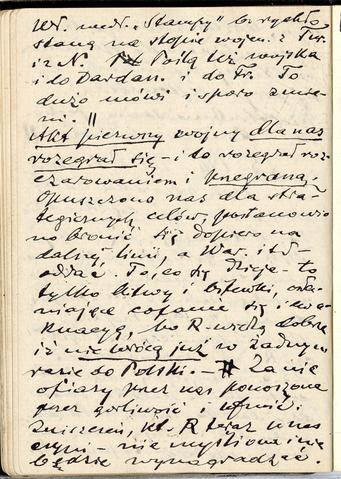 Wł. wedł. „Stampy" b. rychło
staną na stopie wojen. z Tur.
iż N. Poślą też wojska
i do Dardan. i do Fr. To
dużo mówi i sporo zmie-
ni.
Akt pierwszy wojny dla nas
rozegrał się – i to rozegrał roz-
czarowaniem i przegraną.
Opuszczono nas dla stra-
tegicznych celów, postanowio-
no bronić się dopiero na
dalszej linii, a War. itd.
oddać. To, co się dzieje – to
tylko bitwy i bitewki, osła-
niające cofanie się i ewa-
kuację, bo R. wiedzą dobrze
iż nie wrócą już w żadnym
razie do Polski. – Za nic
ofiary przez nas ponoszone
przez gorliwość i
zniszczeń, kt. R. teraz u nas
czyni – nie myśli i nie
będzie wynagradzać.